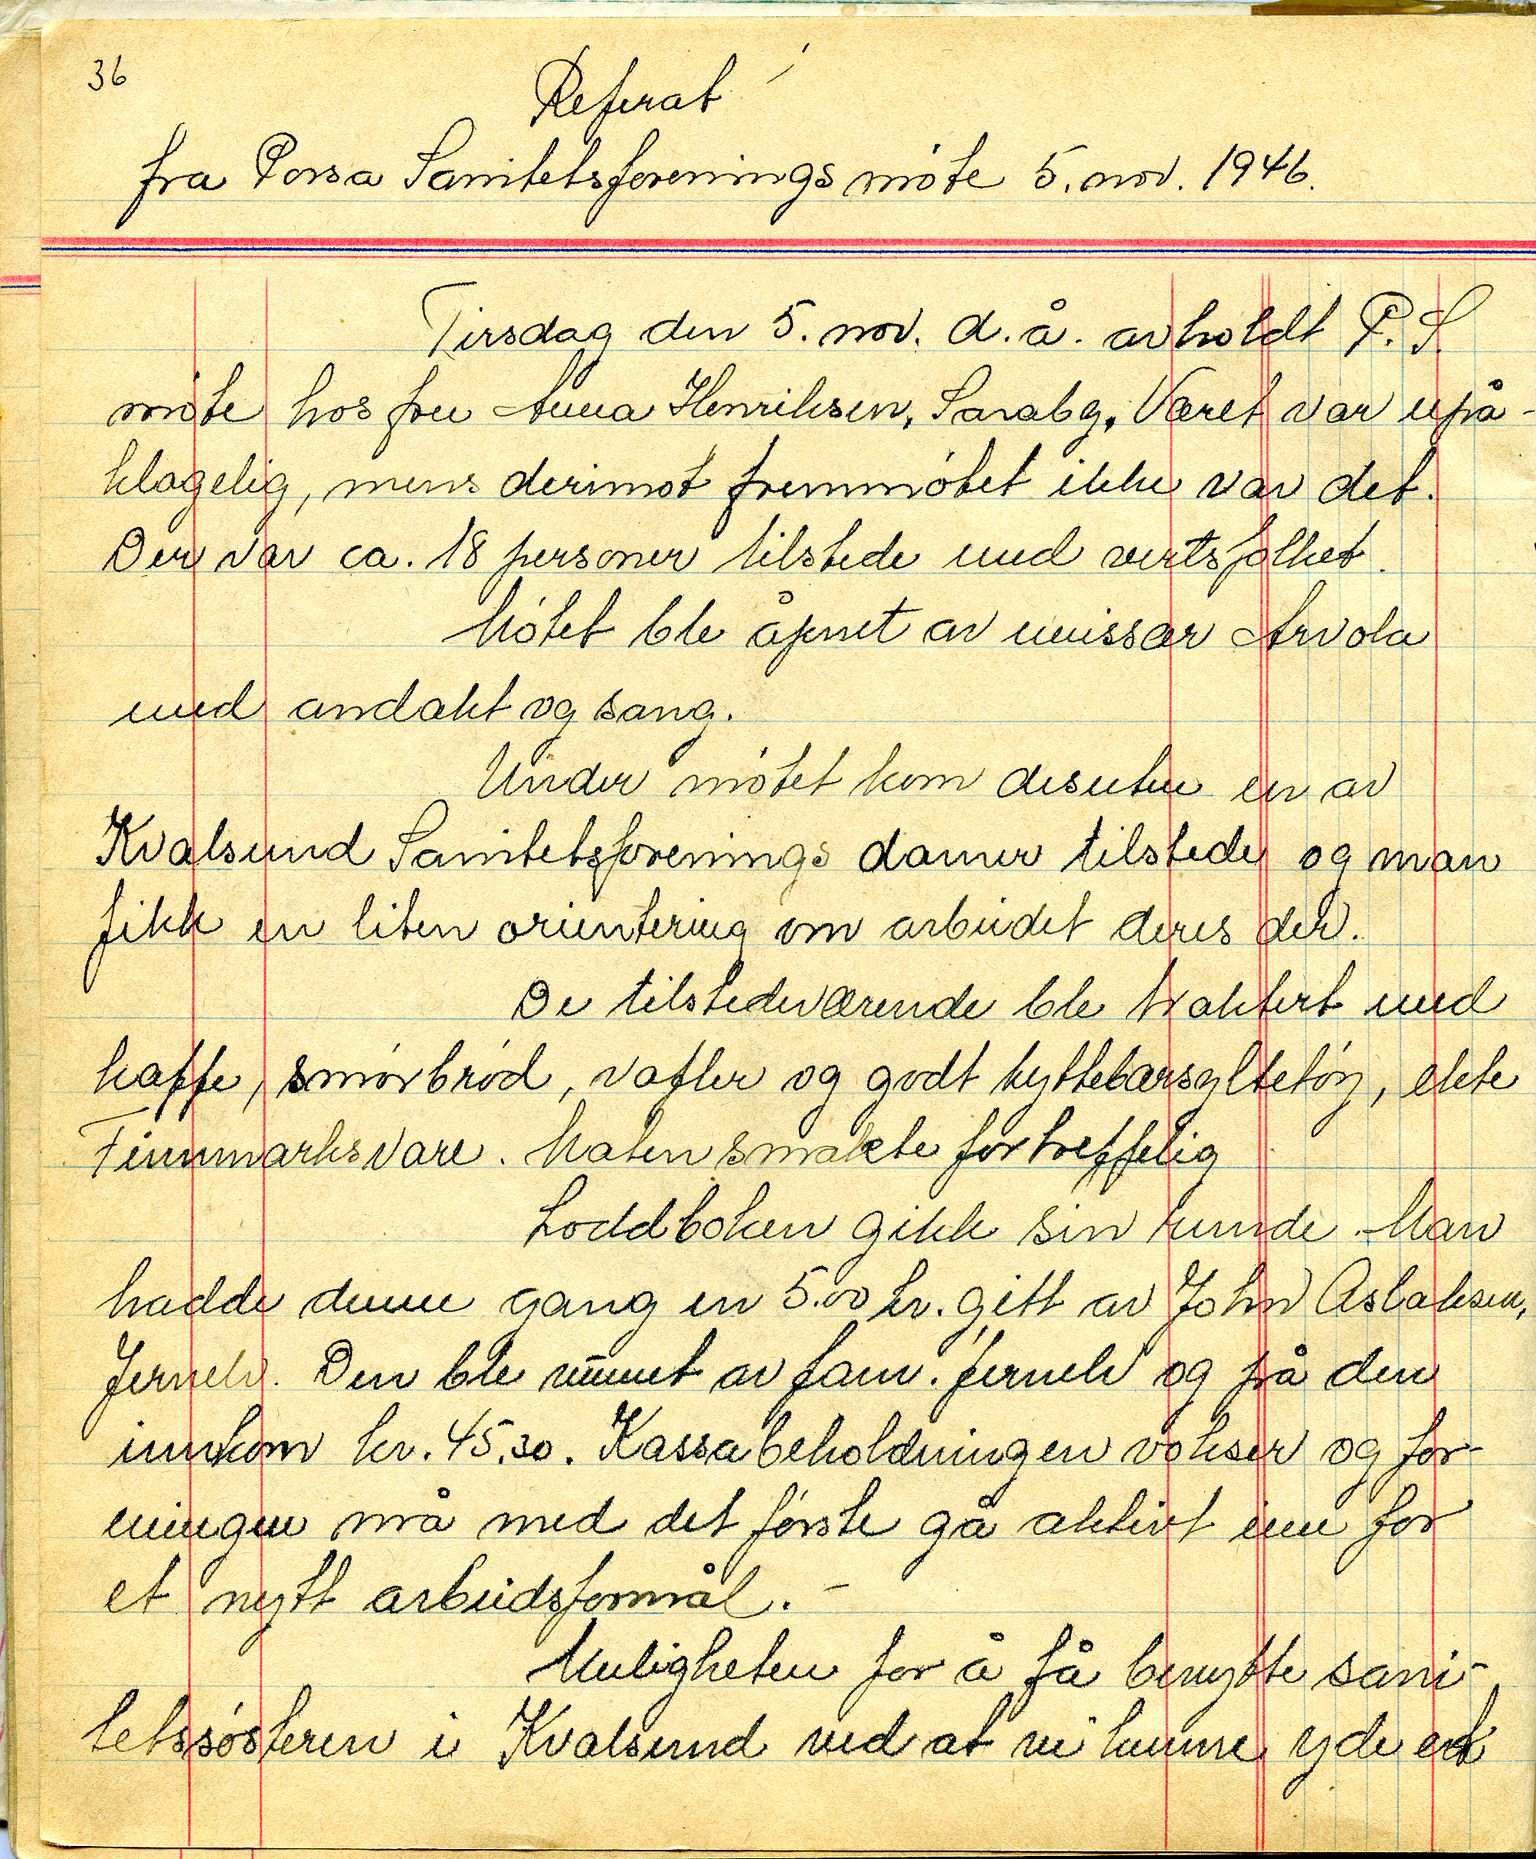 36
Referat
fra Porsa Sanitetsforenings møte 5. nov. 1946.
Tirsdag den 5. nov. d.å. avholdt P. S.
møte hos fru Anna Henriksen, Sarabg. Været var upå-
klagelig, mens derimot fremmøtet ikke var det.
Der var ca. 18 personer tilstede med vertsfolket.
Møtet ble åpnet av emissær Arvola
med andakt og sang.
Under møtet kom desuten en av
Kvalsund Sanitetsforenings damer tilstede og man
fikk en liten orientering om arbeidet deres der.
De tilstedeværende ble traktert med
kaffe, smørbrød, vafler og godt tyttebærsyltetøy, ekte
Finnmarksvare. Maten smakte fortreffelig
Loddboken gikk sin runde. Man
hadde denne gang en 5.00 kr. gitt av John Aslaksen,
Jernelv. Den ble vunnet av fam. Jernelv og på den
innkom kr. 45.30. Kassabeholdningen vokser og for-
eningen må med det første gå aktivt inn for
et nytt arbeidsformål. –
Muligheten for å få benytte sani-
tetssøsteren i Kvalsund ved at vi kunne yde et